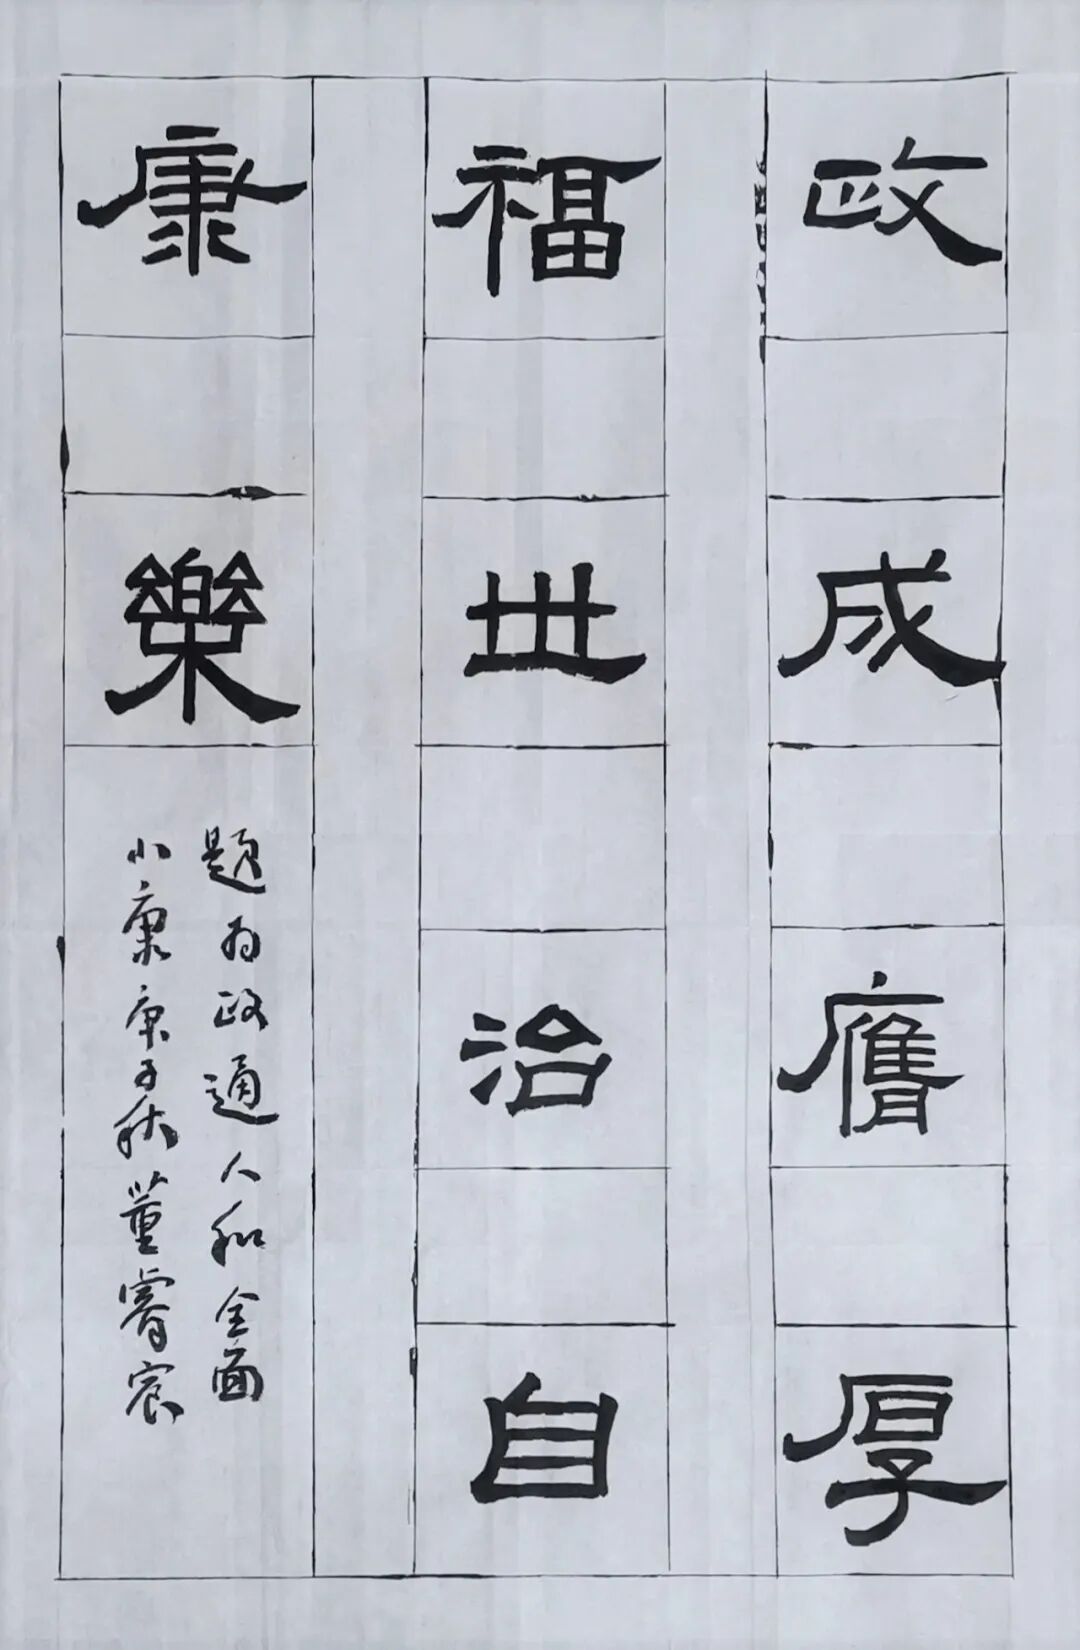 政成膺厚
福世治自
康樂
题为政通人和全面
小康庚子秋董睿宸